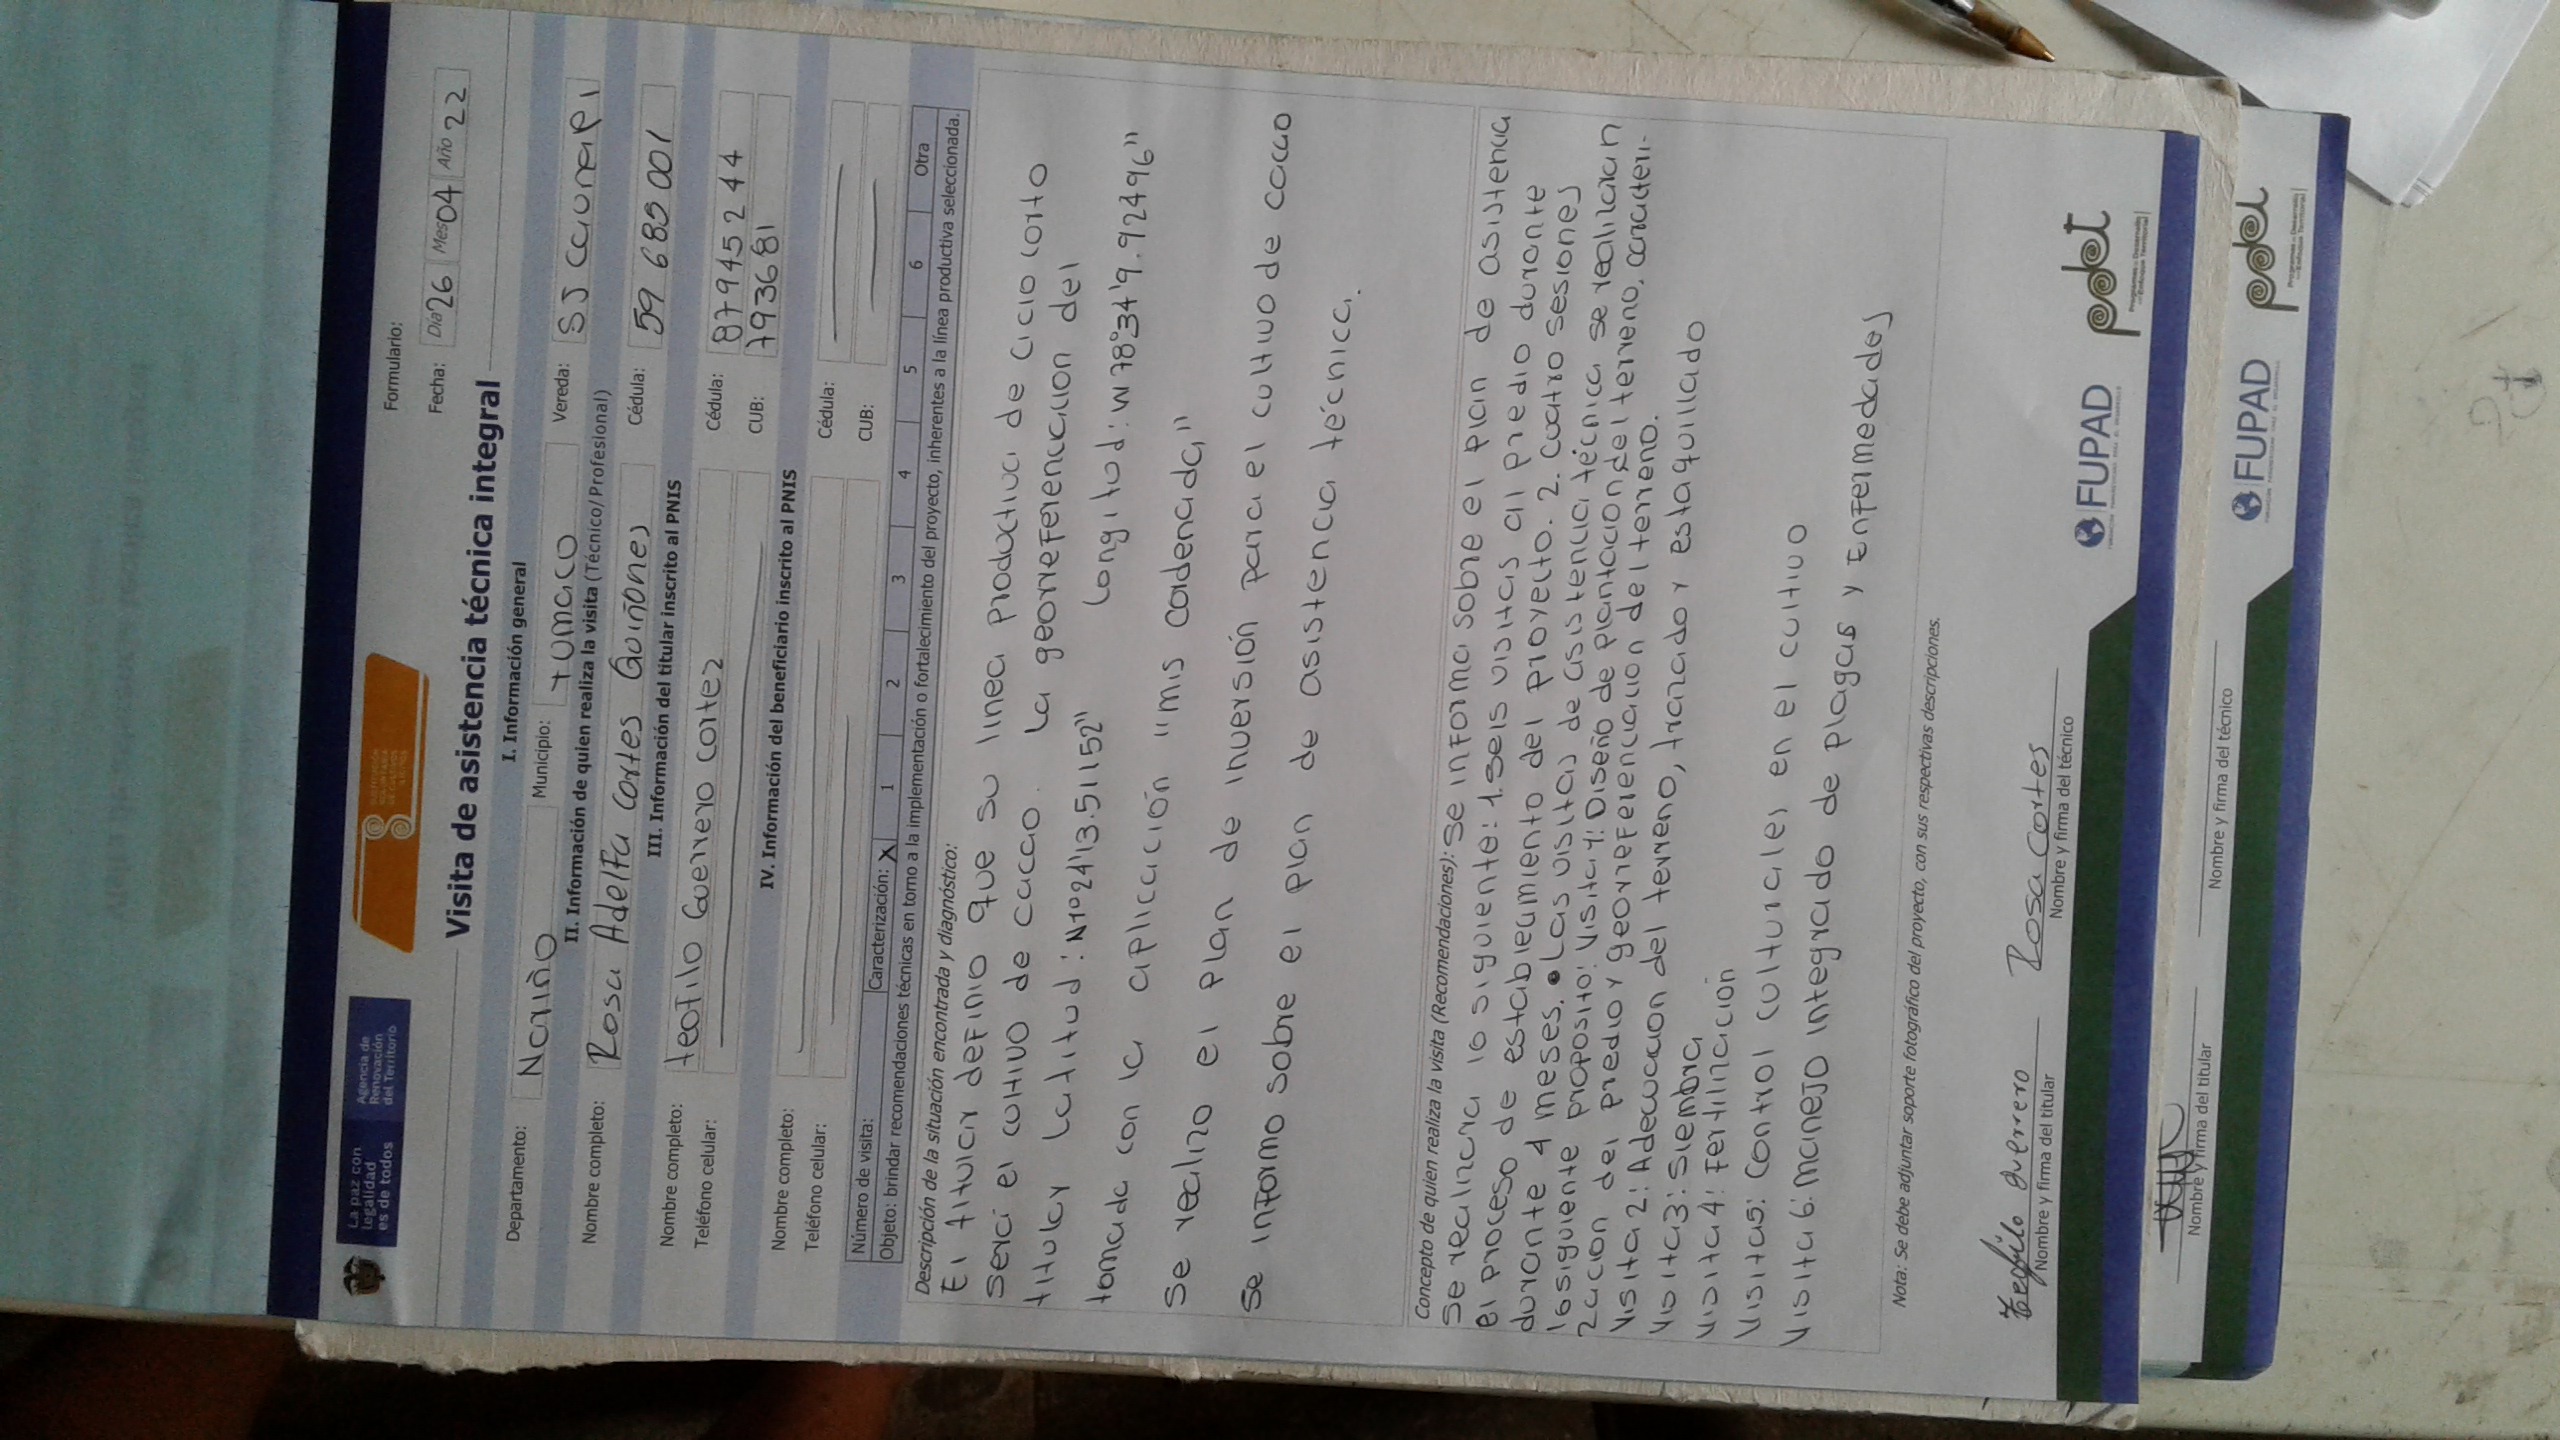 La paz con
legalidad
es de todos
Agencia de
Renovación
del Territorio
Formulario:
Fecha: Día 26 Mes 04 Año 22
Visita de asistencia técnica integral
I. Información general
Departamento: Nariño Municipio: tumaco Vereda: SJ Caunapi
II. Información de quien realiza la visita (Técnico/Profesional)
Nombre completo: Rosa Adelfa Cortes Quiñones Cédula: 59 685 001
III. Información del titular inscrito al PNIS
Nombre completo: teofilo Guerrero Cortez Cédula: 87945244
Teléfono celular: CUB: 793681
IV. Información del beneficiario inscrito al PNIS
Nombre completo: Cédula:
Teléfono celular: CUB:
Número de visita: Caracterización: X 1 2 3 4 5 6 Otra
Objeto: brindar recomendaciones técnicas en torno a la implementación o fortalecimiento del proyecto, inherentes a la línea productiva seleccionada.
Descripción de la situación encontrada y diagnóstico:
El titular definio que su linea productiva de ciclo corto
sera el cultivo de cacao. la georreferenciacion del
titular Latitud: N1°24'13.51152" Longitud: W78°34'9.92496"
tomada con la aplicación "mis cordenada"
se realizo el plan de inversión para el cultivo de cacao
se informo sobre el plan de asistencia técnica.
Concepto de quien realiza la visita (Recomendaciones): se informa sobre el plan de asistencia
se realizara lo siguiente: 1. seis visitas al predio durante
el proceso de establecimiento del proyecto. 2. cuatro sesiones
durante 4 meses. • Las visitas de asistencia técnica se realizaran
lo siguiente proposito: Visita 1: Diseño de plantacion del terreno, caracteri-
zacion del predio y georreferenciacion del terreno.
Visita 2: Adecuacion del terreno, trazado y estaquillado
Visita 3: Siembra
Visita 4: Fertilizacion
Visita 5: Control culturales en el cultivo
Visita 6: manejo integrado de plagas y Enfermedades
Nota: Se debe adjuntar soporte fotográfico del proyecto, con sus respectivas descripciones.
Teofilo guerrero Rosa Cortes
Nombre y firma del titular Nombre y firma del técnico
FUPAD pdet
Nombre y firma del titular Nombre y firma del técnico
FUPAD pdet